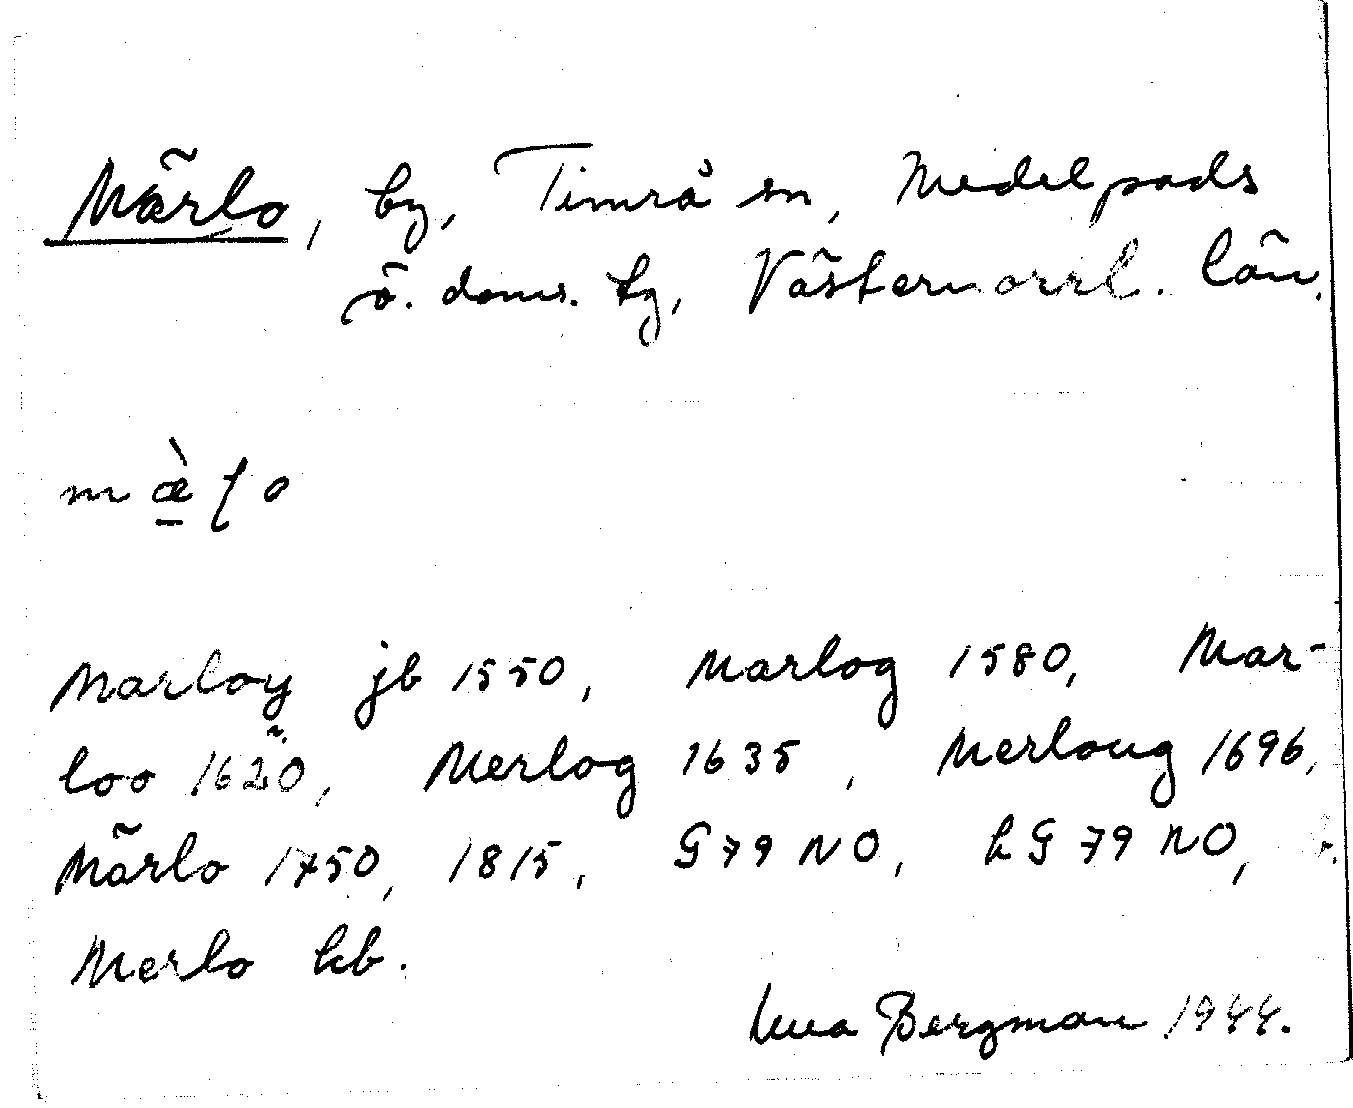 Märlo, by, Timrå sn, Medelpads
ö. doms. tg, Västernorrl. län.
mæ̀ɽo
Marloy jb 1550, Marlog 1580, Mar-
loo 1620, Merlog 1635, Merloug 1696,
Märlo 1750, 1815, G 79 NO, h G 79 NO,
Merlo kb.
Bergman 1944.